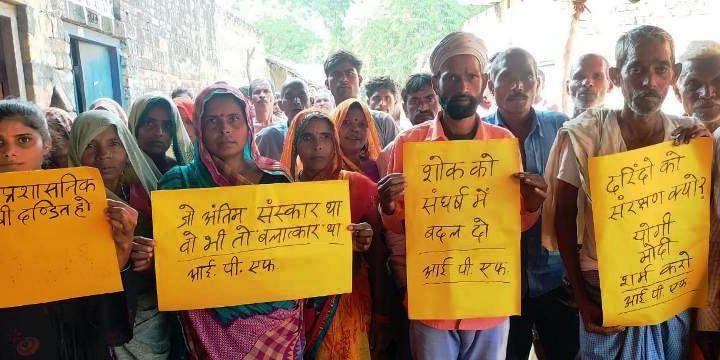 प्रशासनिक
भी दण्डित हो
जो अंतिम संस्कार था
वो भी तो बलात्कार था
आई. पी. एफ.
शोक को
संघर्ष में
बदल दो
आई. पी. एफ.
दरिंदो को
संरक्षण क्यो?
योगी
मोदी
शर्म करो
आई. पी. एफ.